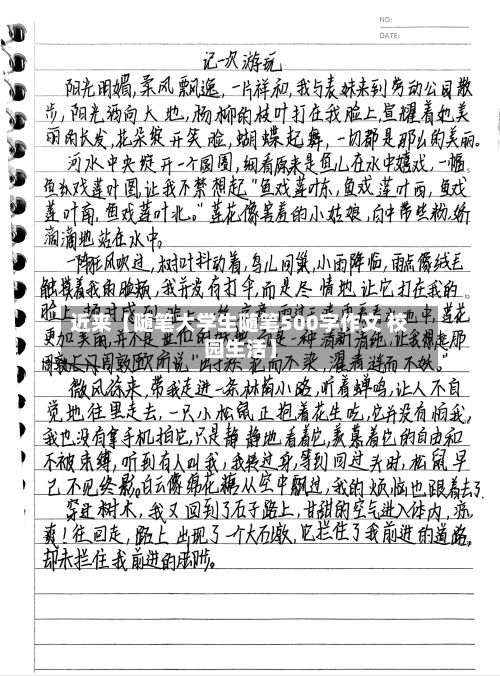 NO:
DATE:
记一次游玩
阳光明媚,柔风飘逸,一片祥和,我与表妹来到劳动公园散
步,阳光洒向大地,杨柳的枝叶打在我脸上,宣耀着她美
丽的长发,花朵绽开笑脸,蝴蝶起舞,一切都是那么的美丽。
河水中央绽开一个圆圈,细看原来是鱼儿在水中嬉戏,一幅
鱼戏莲叶图,让我不禁想起“鱼戏莲叶东,鱼戏莲叶西,鱼戏
莲叶南,鱼戏莲叶北。”莲花像害羞的小姑娘,白中带些粉,娇
滴滴地站在水中。
一阵风吹过,树叶抖动着,鸟儿回巢,小雨降临,雨点像绒毛
触摸着我的脸颊,我并没有打伞而是尽情地让它打在我的
脸上
近来【随笔大学生随笔500字作文 校
园生活】
更加美丽,并不是
让我想起那
周敦颐所说“出淤泥而不染,濯清涟而不妖。”
微风徐来,带我走进一条林荫小路,听着蝉鸣,让人不自
觉地往里走去,一只小松鼠正抱着花生吃,它并没有怕我,
我也没有拿手机拍它,只是静静地看着它,羡慕着它的自由和
不被束缚,听到有人叫我,我转过身,等到回过头时,松鼠早
已不见终影。白云像棉花糖从空中飘过,我的烦恼也跟着去了。
穿过树木,我又回到了石子路上,甘甜的空气进入体内,凉
爽!往回走,路上出现了一个大石墩,它拦住了我前进的道路,
却未拦住我前进的脚步。